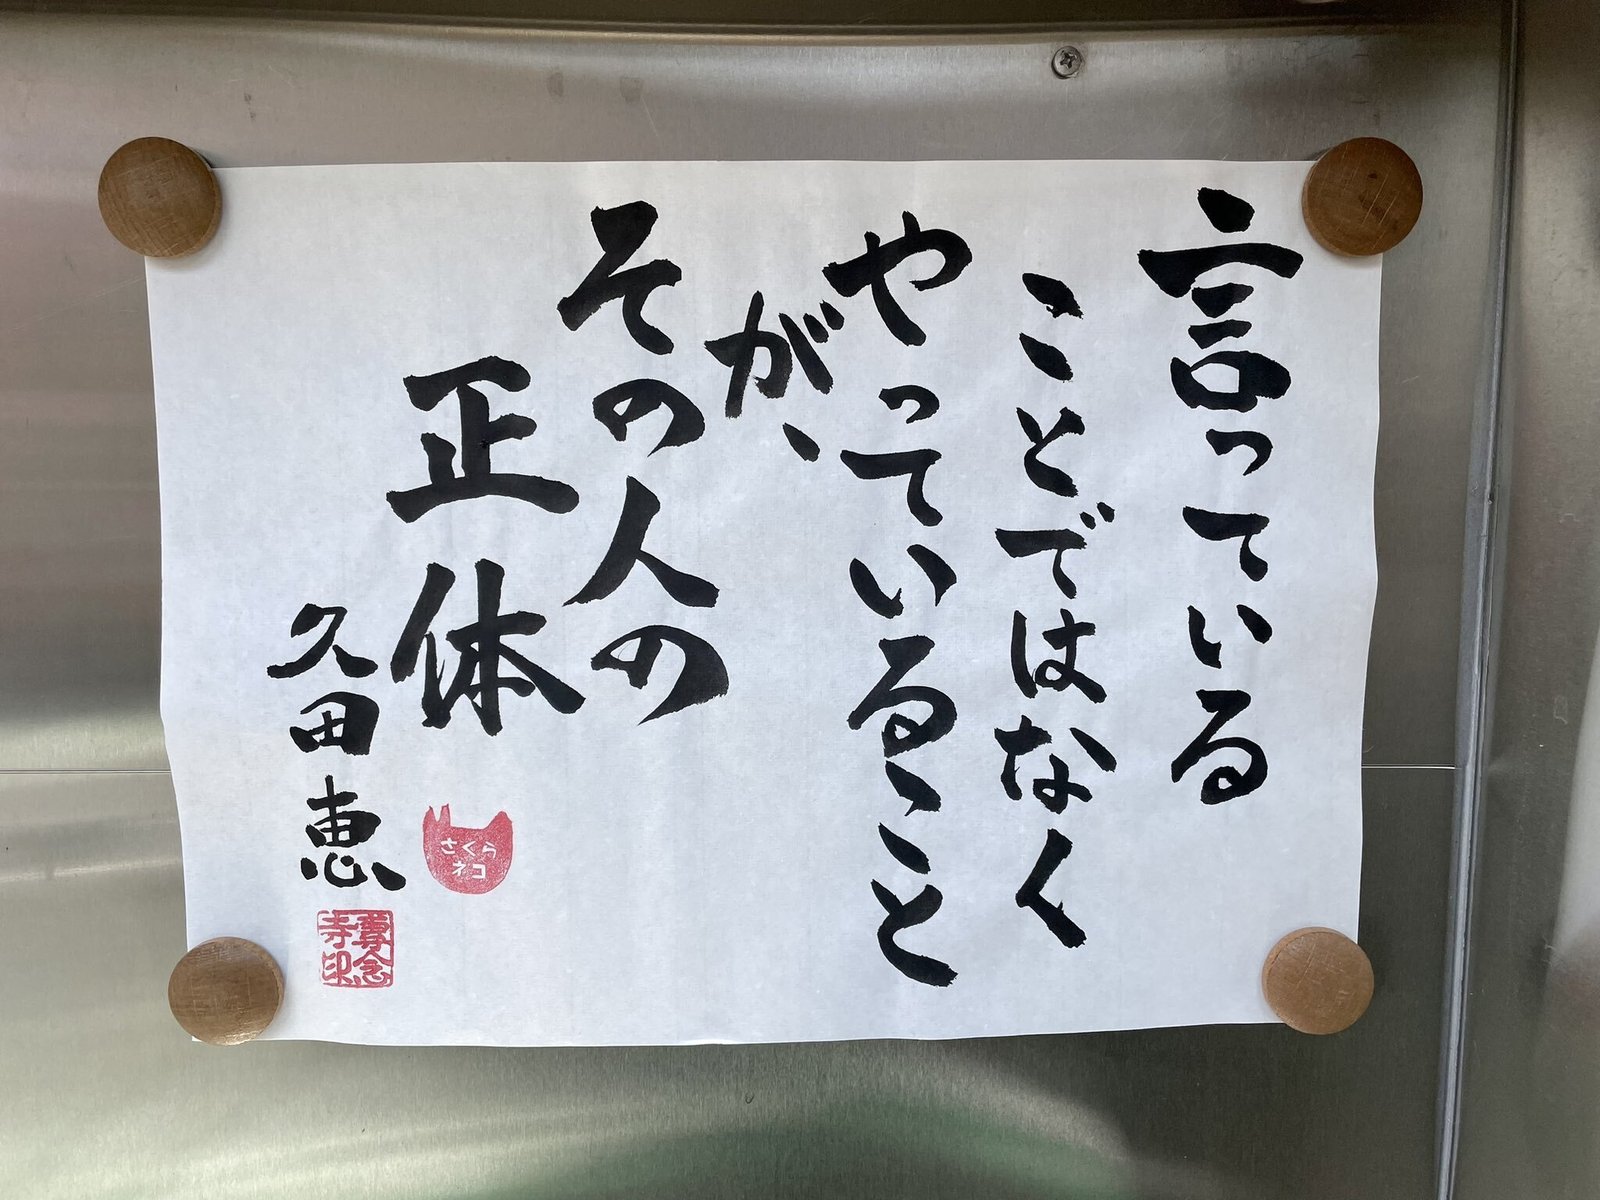 言っている
ことではなく
やっていること
が、
その人の
正体
久田恵
さくら
ネコ
尊念
寺印